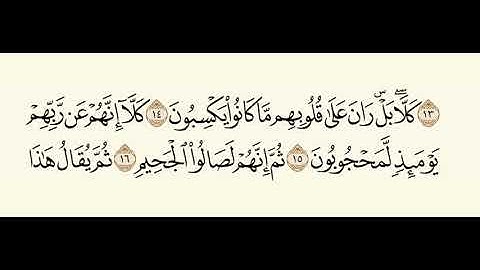 ١٣ كَلَّا ۖ بَلْ ۜ رَانَ عَلَىٰ قُلُوبِهِم مَّا كَانُوا۟ يَكْسِبُونَ ١٤ كَلَّآ إِنَّهُمْ عَن رَّبِّهِمْ
يَوْمَئِذٍ لَّمَحْجُوبُونَ ١٥ ثُمَّ إِنَّهُمْ لَصَالُوا۟ ٱلْجَحِيمِ ١٦ ثُمَّ يُقَالُ هَٰذَا